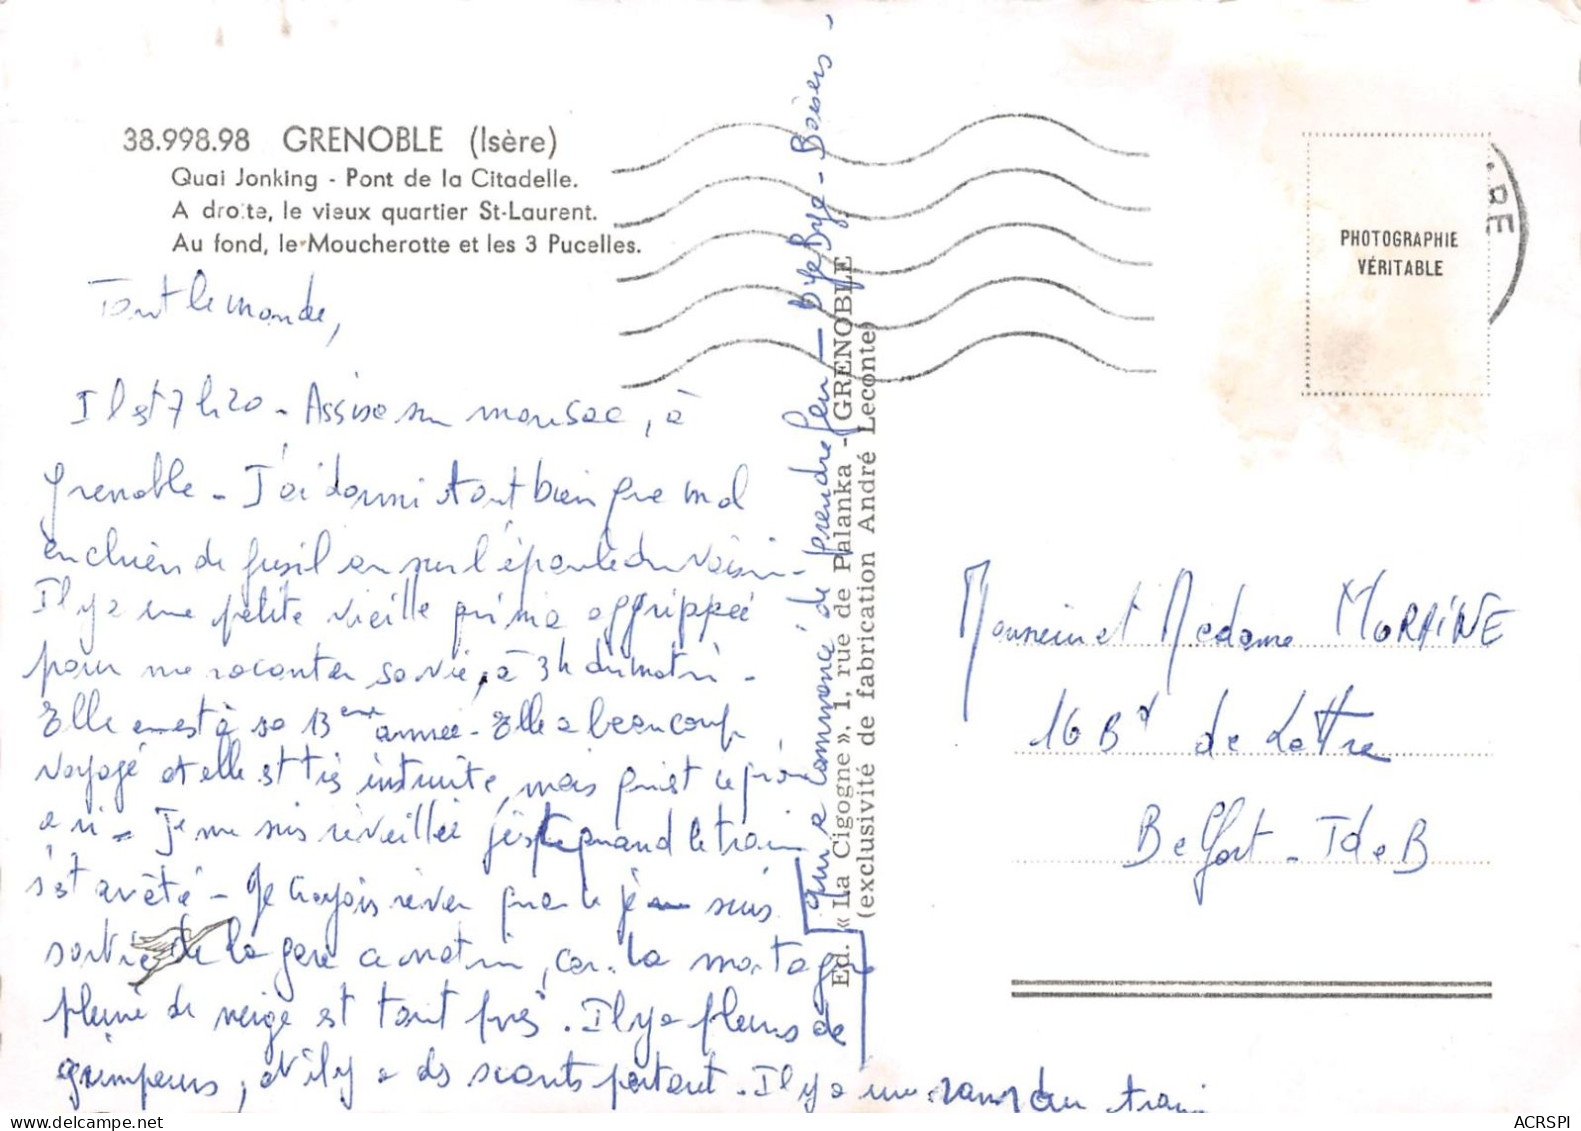 38.998.98 GRENOBLE (Isère)
Quai Jonking - Pont de la Citadelle.
A droite, le vieux quartier St-Laurent.
Au fond, le Moucherotte et les 3 Pucelles.
Tout le monde,
Il est 7h20 - Assise sur mon sac, à
grenoble - J'ai dormi tant bien que mal
en chien de fusil ou sur l'épaule du voisin -
Il y a une petite vieille qui m'a aggrippée
pour me raconter sa vie, à 3h du matin -
Elle en est à sa 13ème année - Elle a beaucoup
voyagé et elle est très instruite, mais qu'est ce qu'on
a ri - Je me suis réveillée juste quand le train
s'est arrêté - Je croyais rêver quand je suis
sortie de la gare ce matin, car la montagne
pleine de neige est tout près. Il y a pleins de
grimpeurs, et il y a des scouts partout - Il y a un dans du train
qui a commencé de prendre feu - bye Bye - Baisers -
Ed. « La Cigogne ». 1, rue de Palanka - GRENOBLE
(exclusivité de fabrication André Leconte)
ARE
PHOTOGRAPHIE
VÉRITABLE
Monsieur et Madame MORAINE
16 Bd de Lattre
Belfort - T de B
ACRSPI